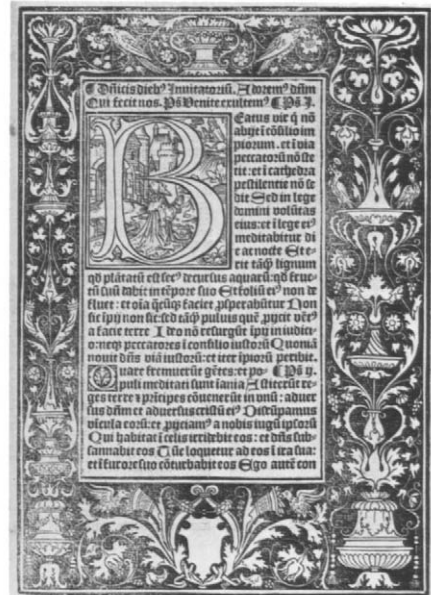 ¶ Dn̄icis dieb⁹ Inuitatoriū. Adorem⁹ dn̄m
Qui fecit nos. P̄s Uenite exultem⁹ ¶ P̄s I.
Beatus vir q̄ nō
abijt ī cōsilio im
piorum. et ī via
peccatorū nō ste
tit: et ī cathedra
pestilentie nō se
dit Sed in lege
domini volūtas
eius: et ī lege ei⁹
meditabitur di
e ac nocte Et e
rit tāq̄ lignum
qd̄ plātatū est sec⁹ decursus aquarū: qd̄ fruc
tū suū dabit in tēpore suo Et foliū ei⁹ non de
fluet: et oīa q̄cūq̄ faciet ꝓsperabūtur Non
sic īpij non sic: sed tāq̄ puluis quē ꝓijcit vēt⁹
a facie terre Ideo nō resurgūt īpij in iudici
o: neq̄ peccatores ī consilio iustorū Quoniā
nouit dn̄s viā iustorū: et iter īpiorū peribit.
Quare fremuerūt gētes: et po¶ P̄s ij.
puli meditati sunt īania Astiterūt re
ges terre ⁊ prīcipes cōuenerūt in vnū: aduer
sus dn̄m et aduersus cristū ei⁹ Disrūpamus
vīcula eorū: et ꝓijciam⁹ a nobis iugū ipsorū
Qui habitat ī celis irridebit eos: et dn̄s sub
sannabit eos Tūc loquetur ad eos ī ira sua:
et ī furore suo cōturbabit eos Ego autē con